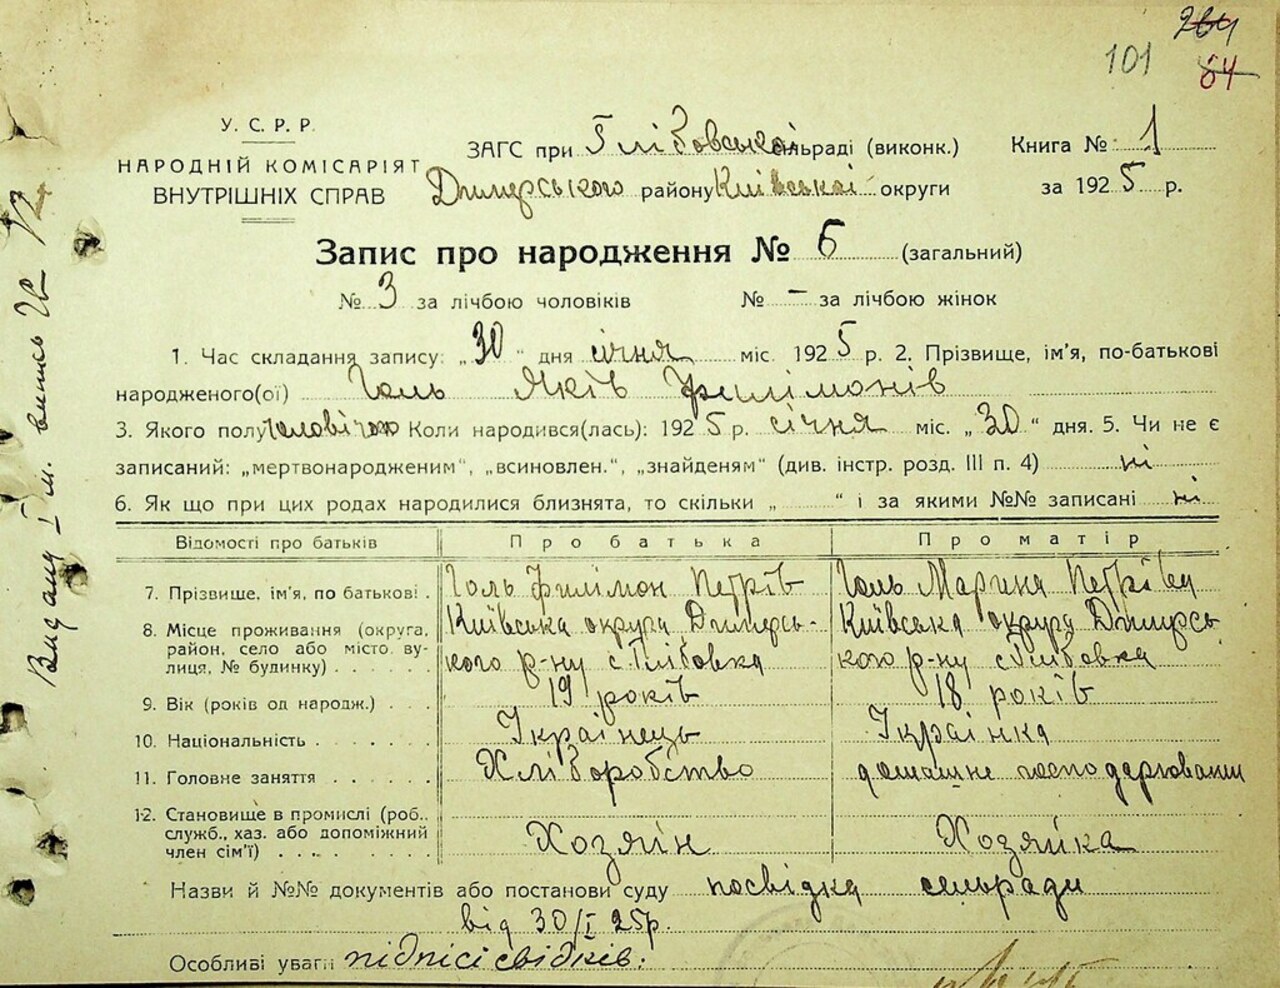 264
101 64
У. С. Р. Р.
НАРОДНІЙ КОМІСАРІЯТ
ВНУТРІШНІХ СПРАВ
ЗАГС при Глібовській сільраді (виконк.)
Димерського району Київської округи
Книга № 1
за 1925 р.
Запис про народження № 6 (загальний)
№ 3 за лічбою чоловіків № – за лічбою жінок
1. Час складання запису: „30“ дня січня міс. 1925 р. 2. Прізвище, ім'я, по-батькові
народженого(ої) Голь Яків Филімонів
3. Якого полу чоловічого Коли народився(лась): 1925 р. січня міс. „30“ дня. 5. Чи не є
записаний: „мертвонародженим“, „всиновлен.“, „знайденям“ (див. інстр. розд. III п. 4) ні
6. Як що при цих родах народилися близнята, то скільки „ “ і за якими №№ записані ні
Відомості про батьків Про батька Про матір
7. Прізвище, ім'я, по батькові . Голь Филімон Петрів Голь Марина Петрівна
8. Місце проживання (округа, район, село або місто, вулиця, № будинку) . . . . . Київська округа Димерсь- кого р-ну с Глібовка Київська округа Димерсь кого р-ну с Глібовка
9. Вік (років од народж.) . . . 19 років 18 років
10. Національність . . . . . . Українець Українка
11. Головне заняття . . . . . Хліборобство домашне господарювання
12. Становище в промислі (роб., служб., хаз. або допоміжний член сім'ї) . . . . . Хозяїн Хозяйка
Назви й №№ документів або постанови суду посвідка сельради
від 30/I 25р.
Особливі уваги підписі свідків:
Видану I м. випись